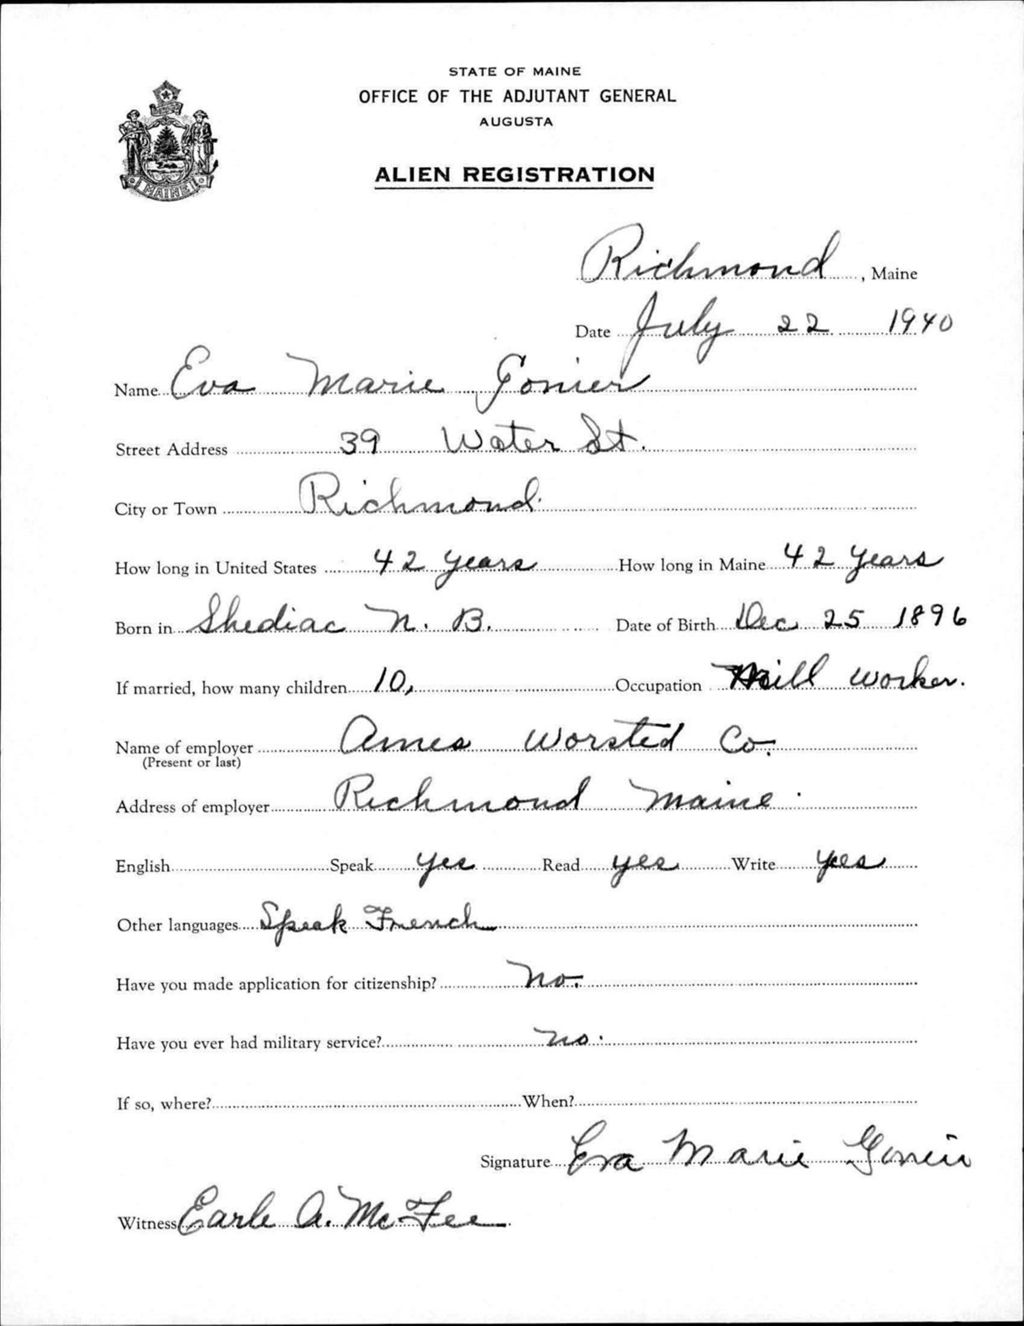 STATE OF MAINE
OFFICE OF THE ADJUTANT GENERAL
AUGUSTA
ALIEN REGISTRATION
MAINE
Richmond, Maine
Date July 22 1940
Name Eva Marie Gonier
Street Address 39 Water St.
City or Town Richmond.
How long in United States 42 years How long in Maine 42 years
Born in Shediac N. B. Date of Birth Dec 25 1896
If married, how many children 10, Occupation Mill worker.
Name of employer Ames Worsted Co.
(Present or last)
Address of employer Richmond Maine.
English Speak yes Read yes Write yes
Other languages Speak French
Have you made application for citizenship? no.
Have you ever had military service? no.
If so, where? When?
Signature Eva Marie Gonier
Witness Earle A. McFee